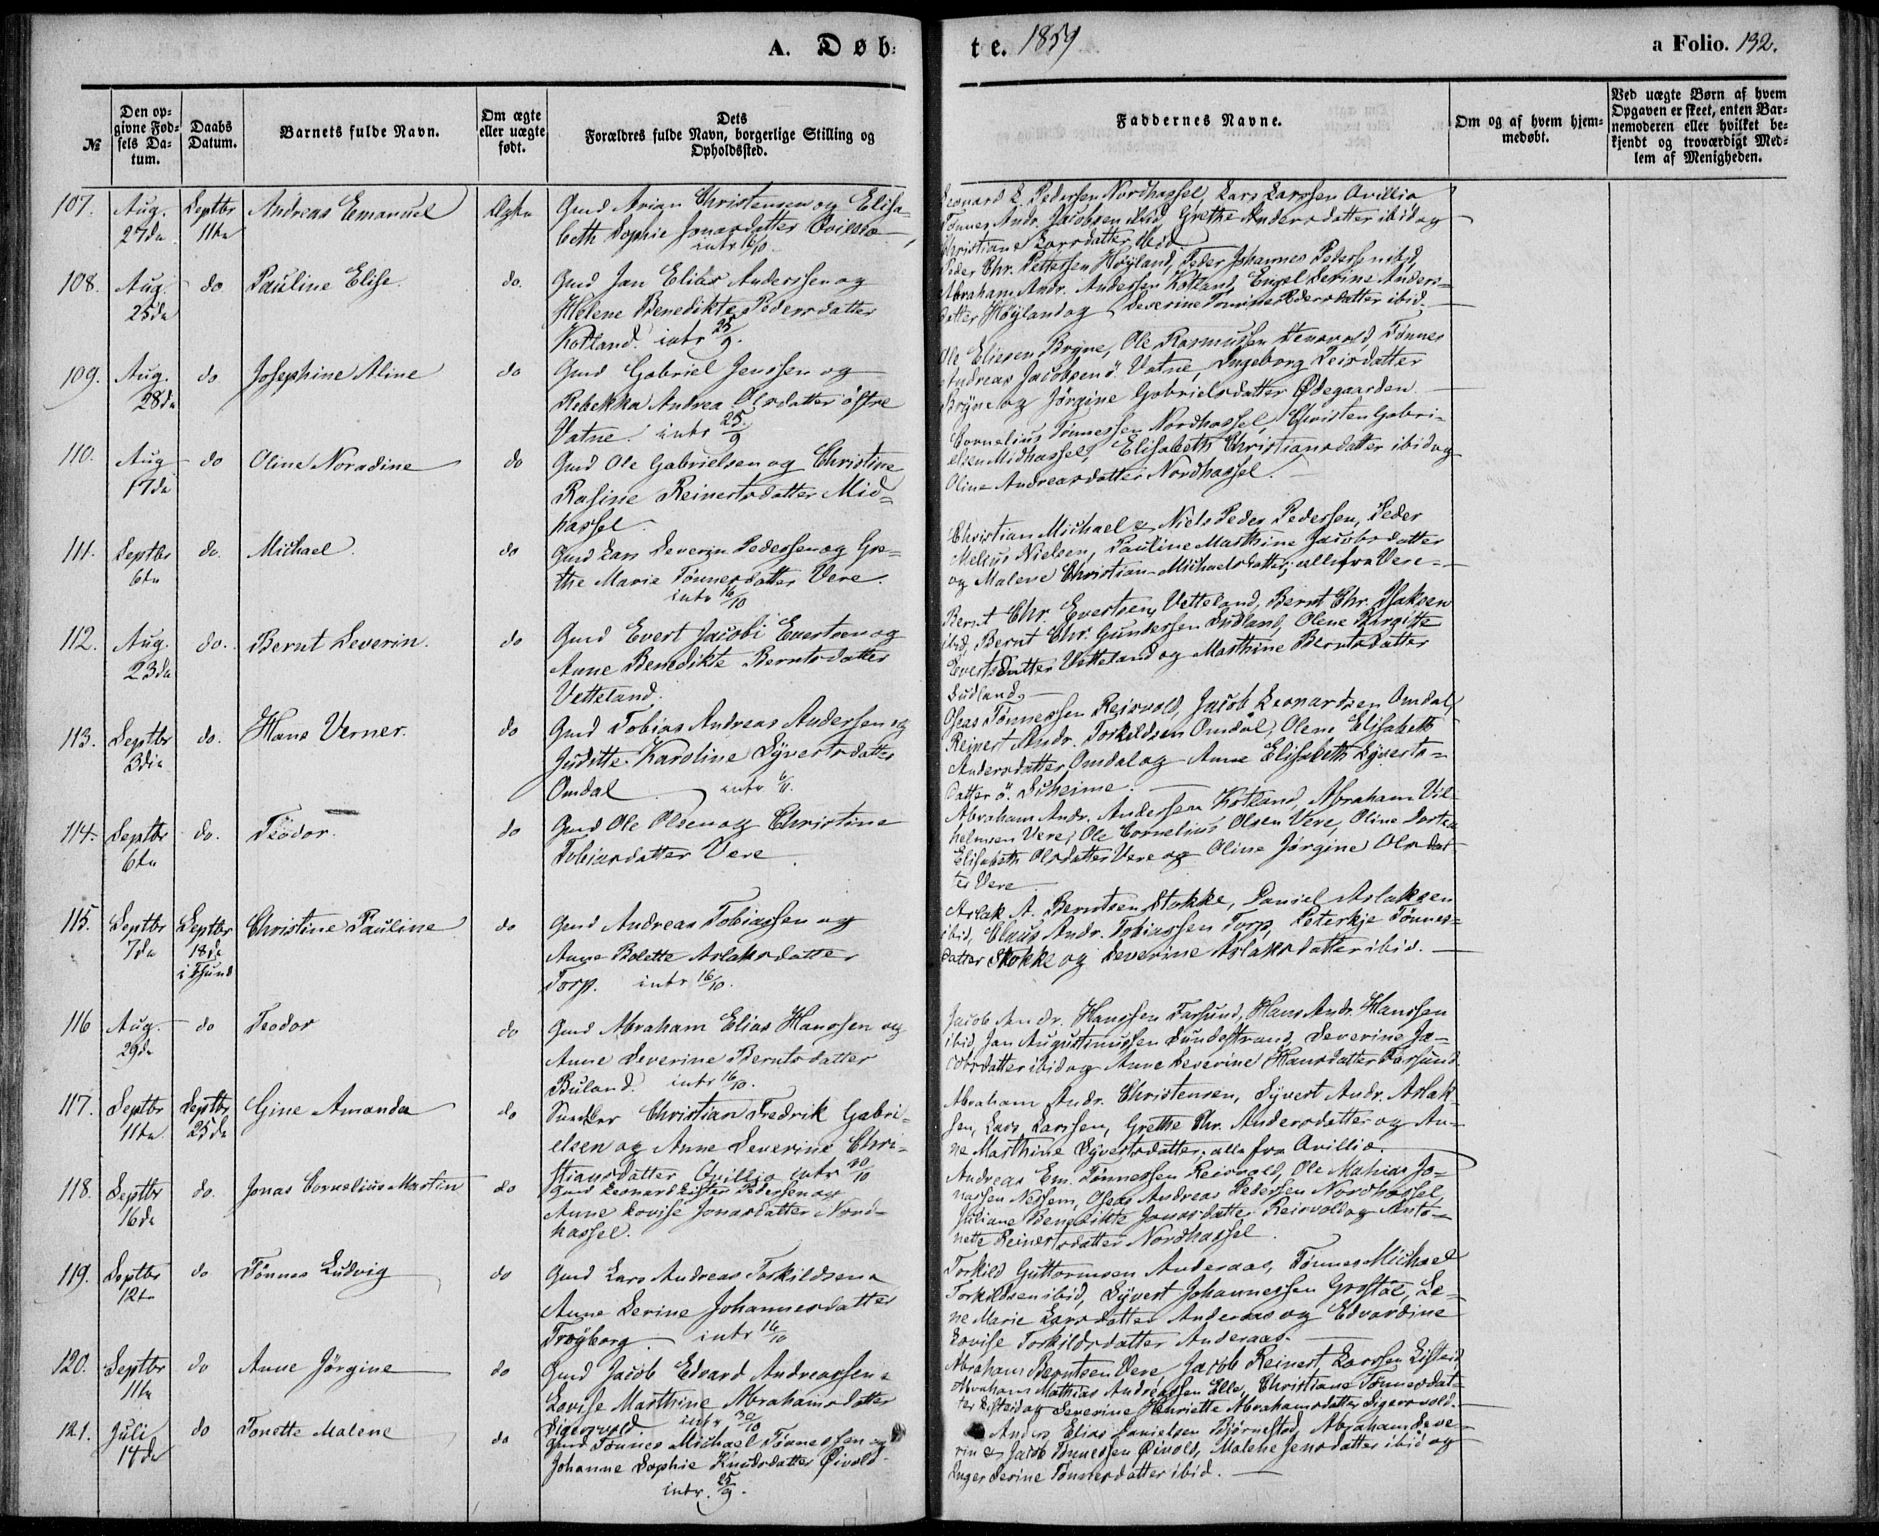 A. Døb:
te. 1859
a Folio. 132.
№
Den op-
givne Fød-
sels Da-
tum.
Daabs
Datum.
Barnets fulde Navn.
Om ægte
eller uægte
født.
Dets
Forældres fulde Navn, borgerlige Stilling og
Opholdssted.
Faddernes Navne.
Om og af hvem hjem-
medøbt.
Ved uægte Børn af hvem
Opgaven er skeet, enten Bar-
nemoderen eller hvilket be-
kjendt og troværdigt Med-
lem af Menigheden.
107. Aug. 27de Septbr 11te Andreas Emanuel Ægte
Gmd Arian Christensen og Elisa-
beth Sophie Jonasdatter Qvillio
intr 16/10.
Leonard L. Pedersen Nordhassel, Lars Larssen Qvillio
Tønnes Andr. Jacobsen ibid, Grethe Andersdatter ibid og
Christiane Larsdatter ibid
108. Aug. 25de do Pauline Elise. do.
Gmd Jan Elias Anderssen og
Helene Benedikte Pedersdatter
Kotland. intr 25/9.
Peder Chr. Pettersen Høyland, Peder Johannes Pedersen ibid,
Abraham Andr. Andersen Kotland, Engel Serine Anders-
datter Høyland og Severine Tomine Pedersdatter ibid.
109. Aug. 28de do Josephine Aline do
Gmd Gabriel Jenssen og
Rebekka Andrea Olsdatter østre
Vatne. intr 25/9
Ole Eliesen Bryne, Ole Rasmussen Stensvold, Tønnes
Andreas Jacobsen ø. Vatne, Ingeborg Leisdatter
Bryne og Jørgine Gabrielsdatter Ødegaarden
110. Aug 17de do Oline Noradine do
Gmd Ole Gabrielsen og Christine
Rasine Reinertsdatter Mid-
hassel
Cornelius Tønnessen Nordhassel, Christen Gabri-
elsen Midhassel, Elisabeth Christiansdatter ibid og
Oline Andreasdatter Nordhassel.
111. Septbr 6te do. Michael. do
Gmd Lars Severin Pedersen og Gre-
the Marie Tønnesdatter Vere.
intr 16/10
Christian Michael & Niels Peder Pedersen, Peder
Melius Nielsen, Pauline Marthine Jacobsdatter
og Malene Christian-Michaelsdatter, alle fra Vere.
112. Aug. 23de do. Bernt Severin. do
Gmd Evert Jacobi Evertsen og
Anne Benedikte Berntsdatter
Vetteland.
Bernt Chr. Evertsen Vetteland, Bernt Chr. Isaksen
ibid, Bernt Chr. Gundersen Sudland, Olene Birgitte
Evertsdatter Vetteland og Marthine Berntsdatter
Sudland.
113. Septbr 3die do. Hans Verner. do
Gmd Tobias Andreas Andersen og
Juditte Karoline Syvertsdatter
Omdal intr 6/11.
Oseas Tønnessen Reisvold, Jacob Leonardsen Omdal,
Reinert Andr. Torkildsen Omdal, Olene Elisabeth
Andersdatter Omdal og Anne Elisabeth Syverts-
datter ø.
114. Septbr 6te do. Teodor. do
Gmd Ole Olsen og Christine
Tobiasdatter Vere
Abraham Andr. Andersen Kotland, Abraham Vil-
helmsen Vere, Ole Cornelius Olsen Vere, Oline Dortea
Elisabeth Olsdatter Vere og Oline Jørgine Olsdat-
ter Vere
115. Septbr 7de Septbr 18de i Fsund Christine Pauline do
Gmd Andreas Tobiassen og
Anne Bolette Aslaksdatter
Torp. intr 16/10.
Aslak A. Berntsen Stokke, Daniel Aslaksen
ibid, Claus Andr. Tobiassen Torp, Peterkje Tønnes-
datter Stokke og Severine Aslaksdatter ibid.
116 Aug. 29de do Teodor do
Gmd Abraham Elias Hanssen og
Anne Severine Berntsdatter
Buland. intr 16/10.
Jacob Andr. Hanssen Farsund, Hans Andr. Hanssen
ibid, Jan Augustinussen Sundestrand, Severine Ja-
cobsdatter ibid og Anne Severine Hansdatter Farsund.
117. Septbr 11te Septbr 25de Gine Amanda do
Christian Fredrik Gabri-
elsen og Anne Severine Chri-
stiansdatter Qvillio intr 30/10
Abraham Andr. Christensen, Syvert Andr. Aslak-
sen, Lars Larssen, Grethe Chr. Andersdatter og An-
ne Marthine Syvertsdatter, alle fra Qvillio.
118. Septbr 16de do. Jonas Cornelius Martin do
Gmd Leonard Lister Pedersen og
Anne Lovise Jonasdatter Nord-
hassel.
Andreas Em. Tønnessen Reisvold, Ole Mathias Jo-
nassen Nessem, Oseas Andreas Pedersen Nordhassel,
Juliane Benedikte Jonasdatter Reisvold og Anto-
nette Reinertsdatter Nordhassel.
119. Septbr 12te do Tønnes Ludvig do
Gmd Lars Andreas Torkildsen &
Anne Serine Johannesdatter
Trøyborg. intr 16/10
Torkild Guttormsen Anderaas, Tønnes Michael
Torkildsen ibid, Syvert Johannessen Grostøl, Le-
ne Marie Larsdatter Anderaas og Edvardine
Lovise Torkildsdatter Anderaas.
120. Septbr 11te do Anne Jørgine do
Gmd Jacob Edvard Andreassen &
Lovise Marthine Abrahamsdatter
Sigersvold. intr 30/10
Abraham Berntsen Vere, Jacob Reinert Larssen Listeid
Abraham Mathias Andreassen Elle, Christiane Tønnesdat-
ter Listeid og Severine Henriette Abrahamsdatter Sigersvold.
121. Juli 14de do Tonette Malene do
Gmd Tønnes Michael Tønnessen og
Johanne Sophie Knudsdatter Øivold.
intr. 25/9.
Anders Elias Danielsen Bjørnestad, Abraham Seve-
rin & Jacob Tønnessen Øivold, Malene Jensdatter ibid og
Inger Serine Tønnesdatter ibid.